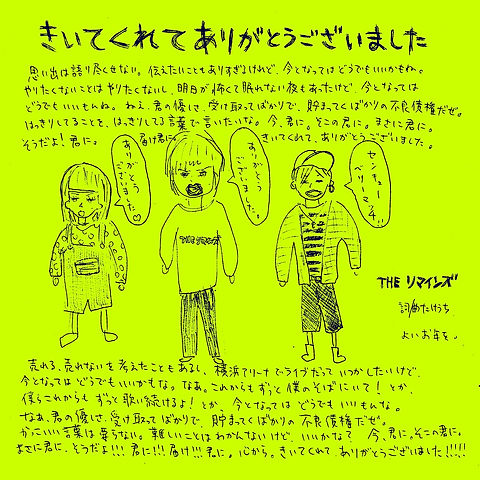 きいてくれてありがとうございました
思い出は語り尽くせない。伝えたいこともありすぎるけれど、今となってはどうでもいいかもね。
やりたくないことはやりたくないし、明日が怖くて眠れない夜もあったけど、今となっては
どうでもいいもんね。ねぇ、君の優しさ、受け取ってばかりで、貯まってくばかりの不良債権だぜ。
はっきりしてることを、はっきりしてる言葉で言いたいな。今、君に。そこの君に。まさに君に。
そうだよ!君に。届け君に。きいてくれて、ありがとうございました。
ありがとうございました♡
ありがとうございました。
センキューベリーマッチ!!
THE リマインズ
THE リマインズ
詞曲 たけうち
よいお年を。
売れる、売れないを考えたこともあるし、横浜アリーナでライブだっていつかしたいけど、
今となってはどうでもいいかもな。なぁ。これからもずっと僕のそばにいて!とか、
僕らこれからもずっと歌い続けるよ!とか、今となってはどうでもいいもんな。
なぁ、君の優しさ、受け取ってばかりで、貯まってくばかりの不良債権だぜ。
かっこいい言葉は要らない。難しいことはわかんないけど、いいかなって 今、君に。そこの君に。
まさに君に。そうだよ!!!君に!!!届け!!!君に。心から。きいてくれて、ありがとうございました!!!!!